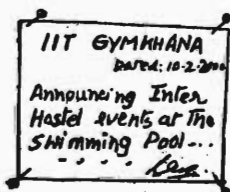 IIT GYMKHANA
Dated: 10-2-2000
Announcing Inter
Hostel events at the
Swimming Pool...
- - - -